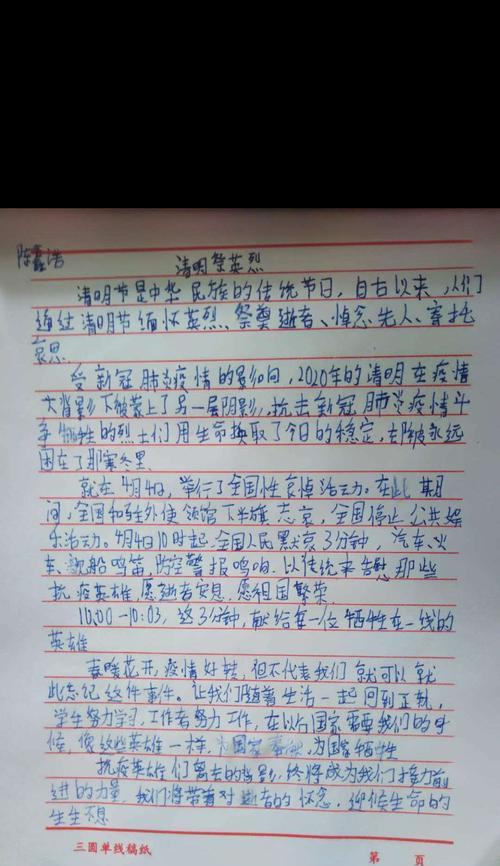 陈鑫浩
清明祭英烈
清明节是中华民族的传统节日,自古以来,人们
通过清明节缅怀英烈、祭奠逝者、悼念先人、寄托
哀思。
受新冠肺炎疫情的影响,2020年的清明在疫情
大背影下被蒙上了另一层阴影,抗击新冠肺炎疫情斗
争牺牲的烈士们用生命换取了今日的稳定,却被永远
困在了那寒冬里
就在4月4日,举行了全国性哀悼活动。在此期
间,全国和驻外使领馆下半旗志哀,全国停止公共娱
乐活动。4月4日10时起,全国人民默哀3分钟,汽车、火
车、舰船鸣笛,防空警报鸣响。以传统来告慰那些
抗疫英雄,愿逝者安息,愿祖国繁荣
10:00-10:03,这3分钟,献给每一位牺牲在一线的
英雄
春暖花开,疫情好转,但不代表我们就可以就
此忘记这件事件。让我们随着生活一起回到正轨,
学生努力学习,工作者努力工作,在以后国家需要我们的时
候,像这些英雄一样,为国家 为国家牺牲
抗疫英雄们离去的背影,终将成为我们接力前
进的力量,我们将带着对逝者的怀念,迎候生命的
生生不息
三圆单线稿纸
第 页